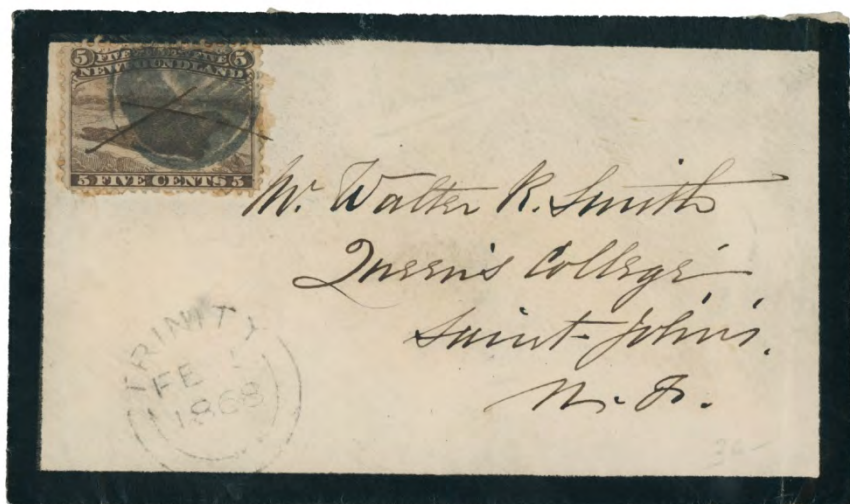 5 FIVE FIVE 5
NEWFOUNDLAND
5 FIVE CENTS 5
Mr. Walter R. Smith
Queen's College,
Saint-John's.
N. F.
TRINITY
FE
1868